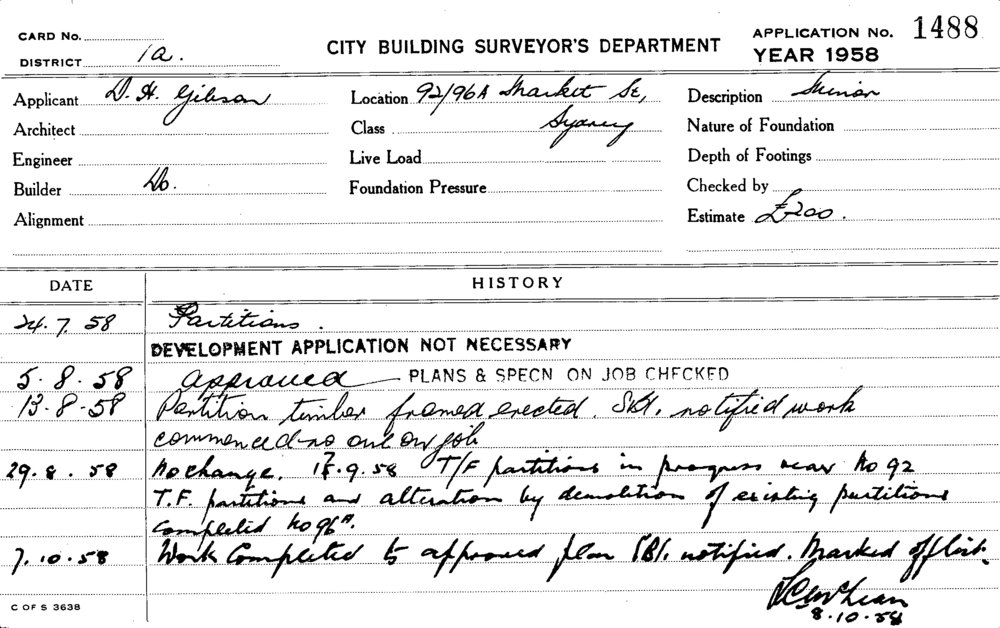 CARD No.
DISTRICT 1a.
CITY BUILDING SURVEYOR'S DEPARTMENT
APPLICATION No. 1488
YEAR 1958
Applicant D. H. Gibson
Location 92/96A Market St,
Sydney
Description Minor
Architect
Class
Nature of Foundation
Engineer
Live Load
Depth of Footings
Builder Do.
Foundation Pressure
Checked by
Alignment
Estimate £200.
DATE HISTORY
24.7.58 Partitions.
DEVELOPMENT APPLICATION NOT NECESSARY
5.8.58 approved PLANS & SPECN ON JOB CHECKED
13.8.58 Partition timber framed erected. notified work
commenced no one on job
29.8.58 No change. 9.58 T/F partitions in progress near No 92
T.F. partitions and alteration by demolition of existing partitions
completed No 96A.
7.10.58 Work Completed to approved plan notified. Marked off list.
8.10.58
C OF S 3638